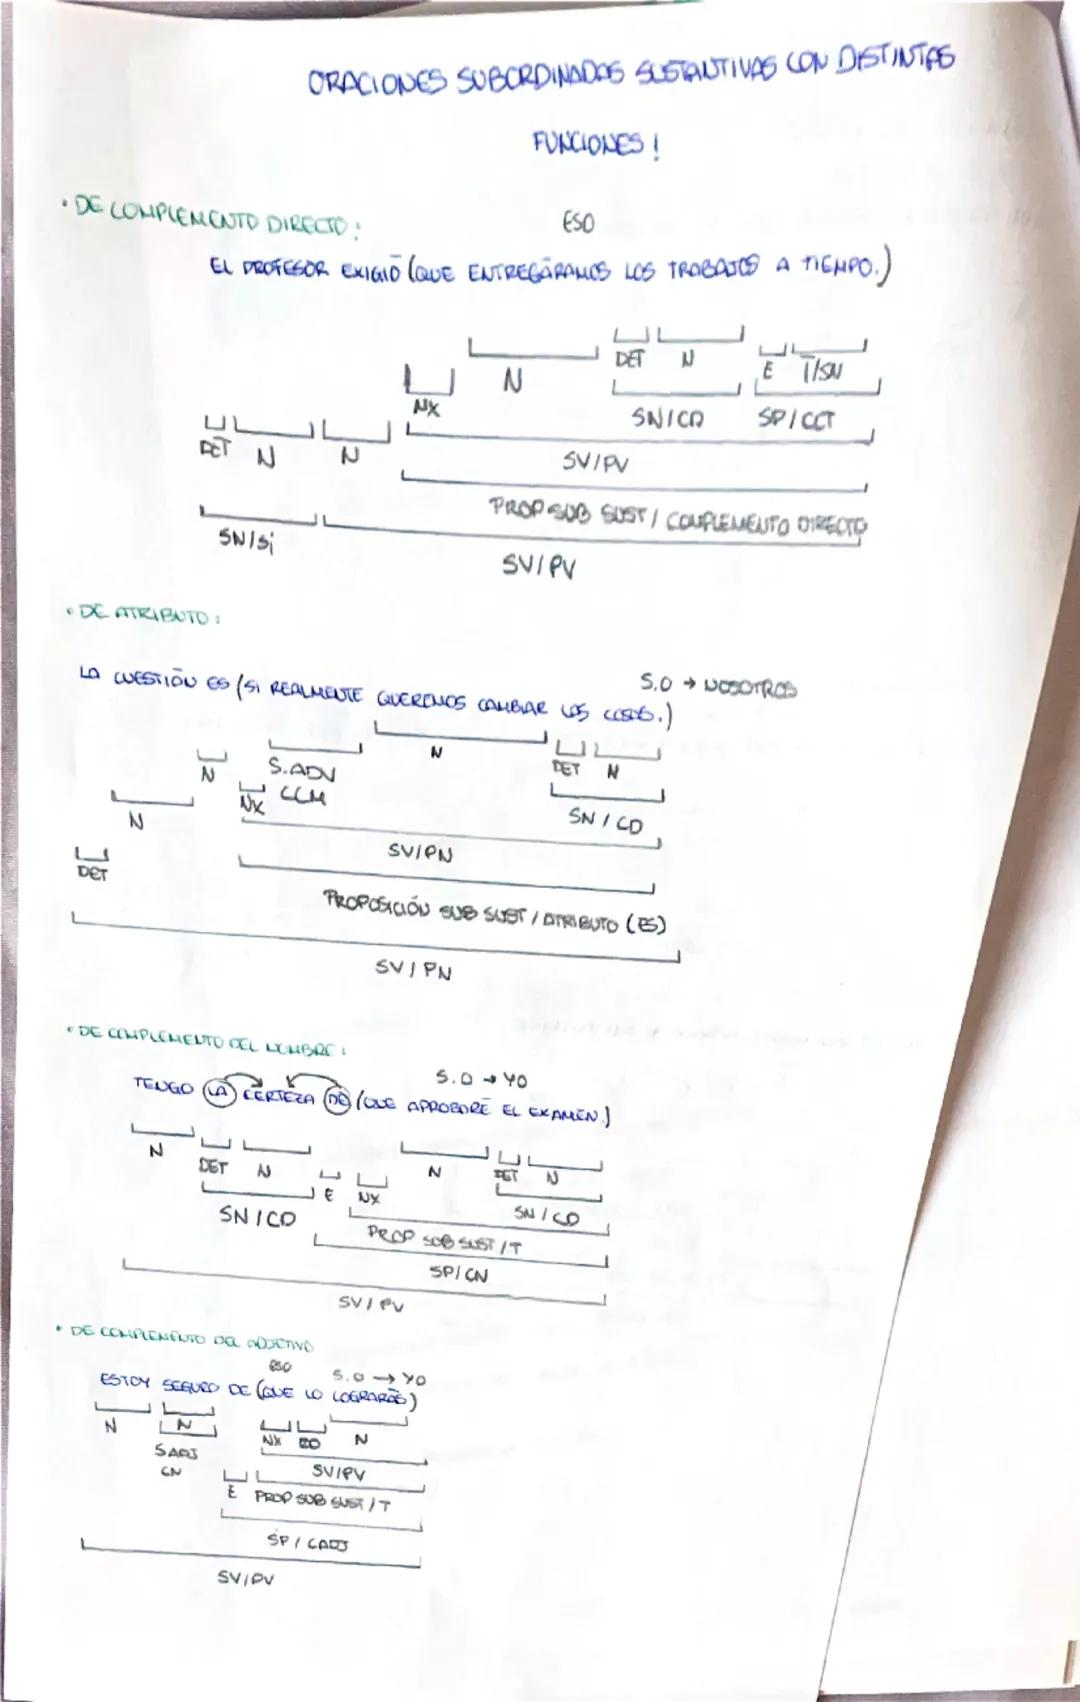 ORACIONES SUBORDINADAS SUSTANTIVAS CON DISTINTAS
FUNCIONES!
• DE COMPLEMENTO DIRECTO:
ESO
EL PROFESOR EXIGIÓ (QUE ENTREGÁRAMOS LOS TRABAJOS A TIEMPO.)
DET N
E T/SN
N
NX
SN/CD SP/CCT
DET N N
SV/PV
PROP SUB SUST / COMPLEMENTO DIRECTO
SN/Sj
SV/PV
• DE ATRIBUTO:
S.O → NOSOTROS
LA CUESTIÓN ES (SI REALMENTE QUEREMOS CAMBIAR LAS COSAS.)
N
N S.ADV DET N
NX CCM
N SN / CD
SV/PN
DET
PROPOSICIÓN SUB SUST / ATRIBUTO (ES)
SV/PN
• DE COMPLEMENTO DEL NOMBRE:
S.O → YO
TENGO LA CERTEZA DE (QUE APROBARÉ EL EXAMEN.)
N DET N N DET N
E NX
SN/CD SN/CD
PROP SUB SUST / T
SP/CN
SV/PV
• DE COMPLEMENTO DEL ADJETIVO
ESO S.O → YO
ESTOY SEGURO DE (QUE LO LOGRARÁS)
N N NX CD N
SADJ
CN SV/PV
E PROP SUB SUST / T
SP / CADJ
SV/PV